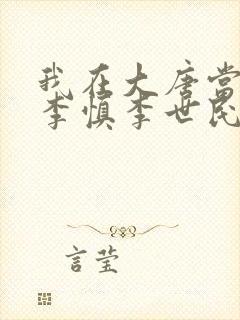 我在大唐当
李慎李世民
言莹